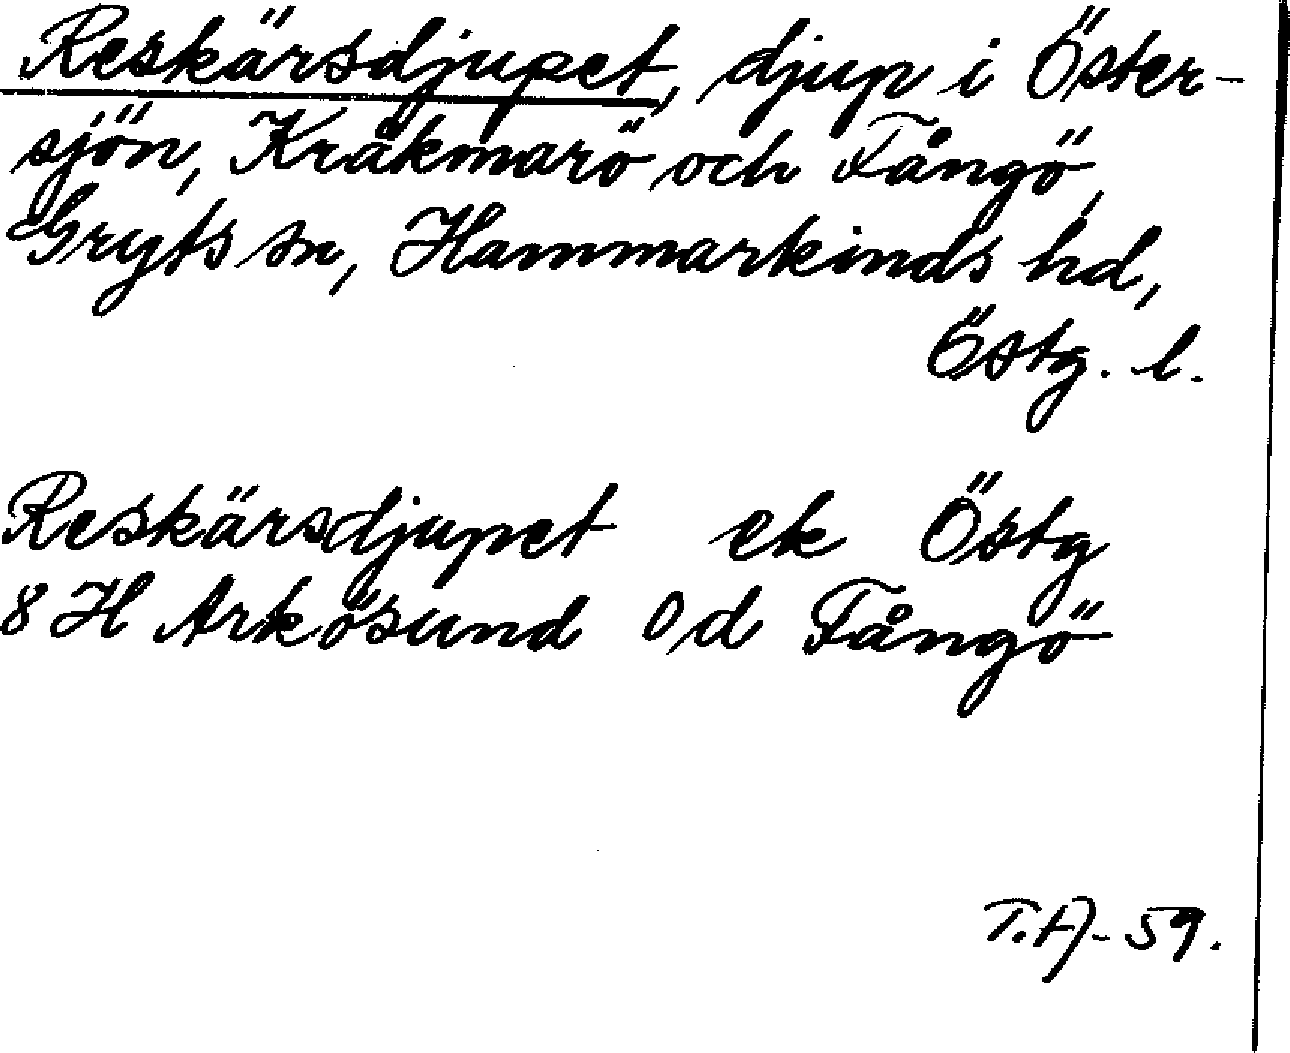 Reskärsdjupet, djup i Öster-
sjön, Kråkmarö och Fångö,
Gryts sn, Hammarkinds hd,
Östg. l.
Reskärsdjupet ek Östg
8 H Arkösund 0 d Fångö
T.A-59.